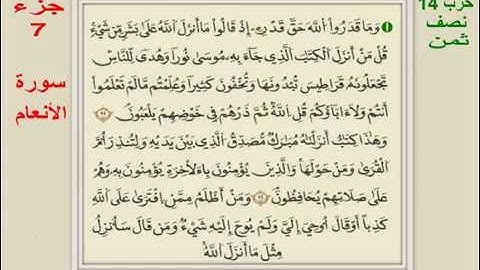 جزء
7
سورة
الأنعام
حزب 14
نصف
ثمن
وَمَا قَدَرُوا۟ ٱللَّهَ حَقَّ قَدْرِهِۦٓ إِذْ قَالُوا۟ مَآ أَنزَلَ ٱللَّهُ عَلَىٰ بَشَرٍ مِّن شَىْءٍ
قُلْ مَنْ أَنزَلَ ٱلْكِتَٰبَ ٱلَّذِى جَآءَ بِهِۦ مُوسَىٰ نُورًا وَهُدًى لِّلنَّاسِ
تَجْعَلُونَهُۥ قَرَاطِيسَ تُبْدُونَهَا وَتُخْفُونَ كَثِيرًا وَعُلِّمْتُم مَّا لَمْ تَعْلَمُوٓا۟
أَنتُمْ وَلَآ ءَابَآؤُكُمْ قُلِ ٱللَّهُ ثُمَّ ذَرْهُمْ فِى خَوْضِهِمْ يَلْعَبُونَ ٩١
وَهَٰذَا كِتَٰبٌ أَنزَلْنَٰهُ مُبَارَكٌ مُّصَدِّقُ ٱلَّذِى بَيْنَ يَدَيْهِ وَلِتُنذِرَ أُمَّ
ٱلْقُرَىٰ وَمَنْ حَوْلَهَا وَٱلَّذِينَ يُؤْمِنُونَ بِٱلْءَاخِرَةِ يُؤْمِنُونَ بِهِۦ وَهُمْ
عَلَىٰ صَلَاتِهِمْ يُحَافِظُونَ ٩٢ وَمَنْ أَظْلَمُ مِمَّنِ ٱفْتَرَىٰ عَلَى ٱللَّهِ
كَذِبًا أَوْ قَالَ أُوحِىَ إِلَىَّ وَلَمْ يُوحَ إِلَيْهِ شَىْءٌ وَمَن قَالَ سَأُنزِلُ
مِثْلَ مَآ أَنزَلَ ٱللَّهُ